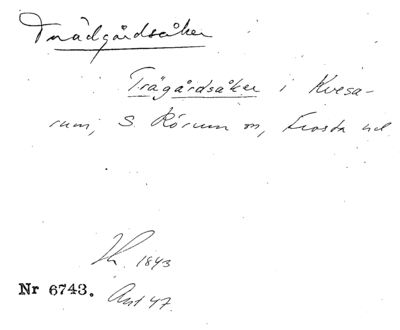 Trädgårdsåker
Trägårdsåker i Kvesa-
rum, S Rörum sn, Frosta hd
1843
Nr 6743. Ant 47.